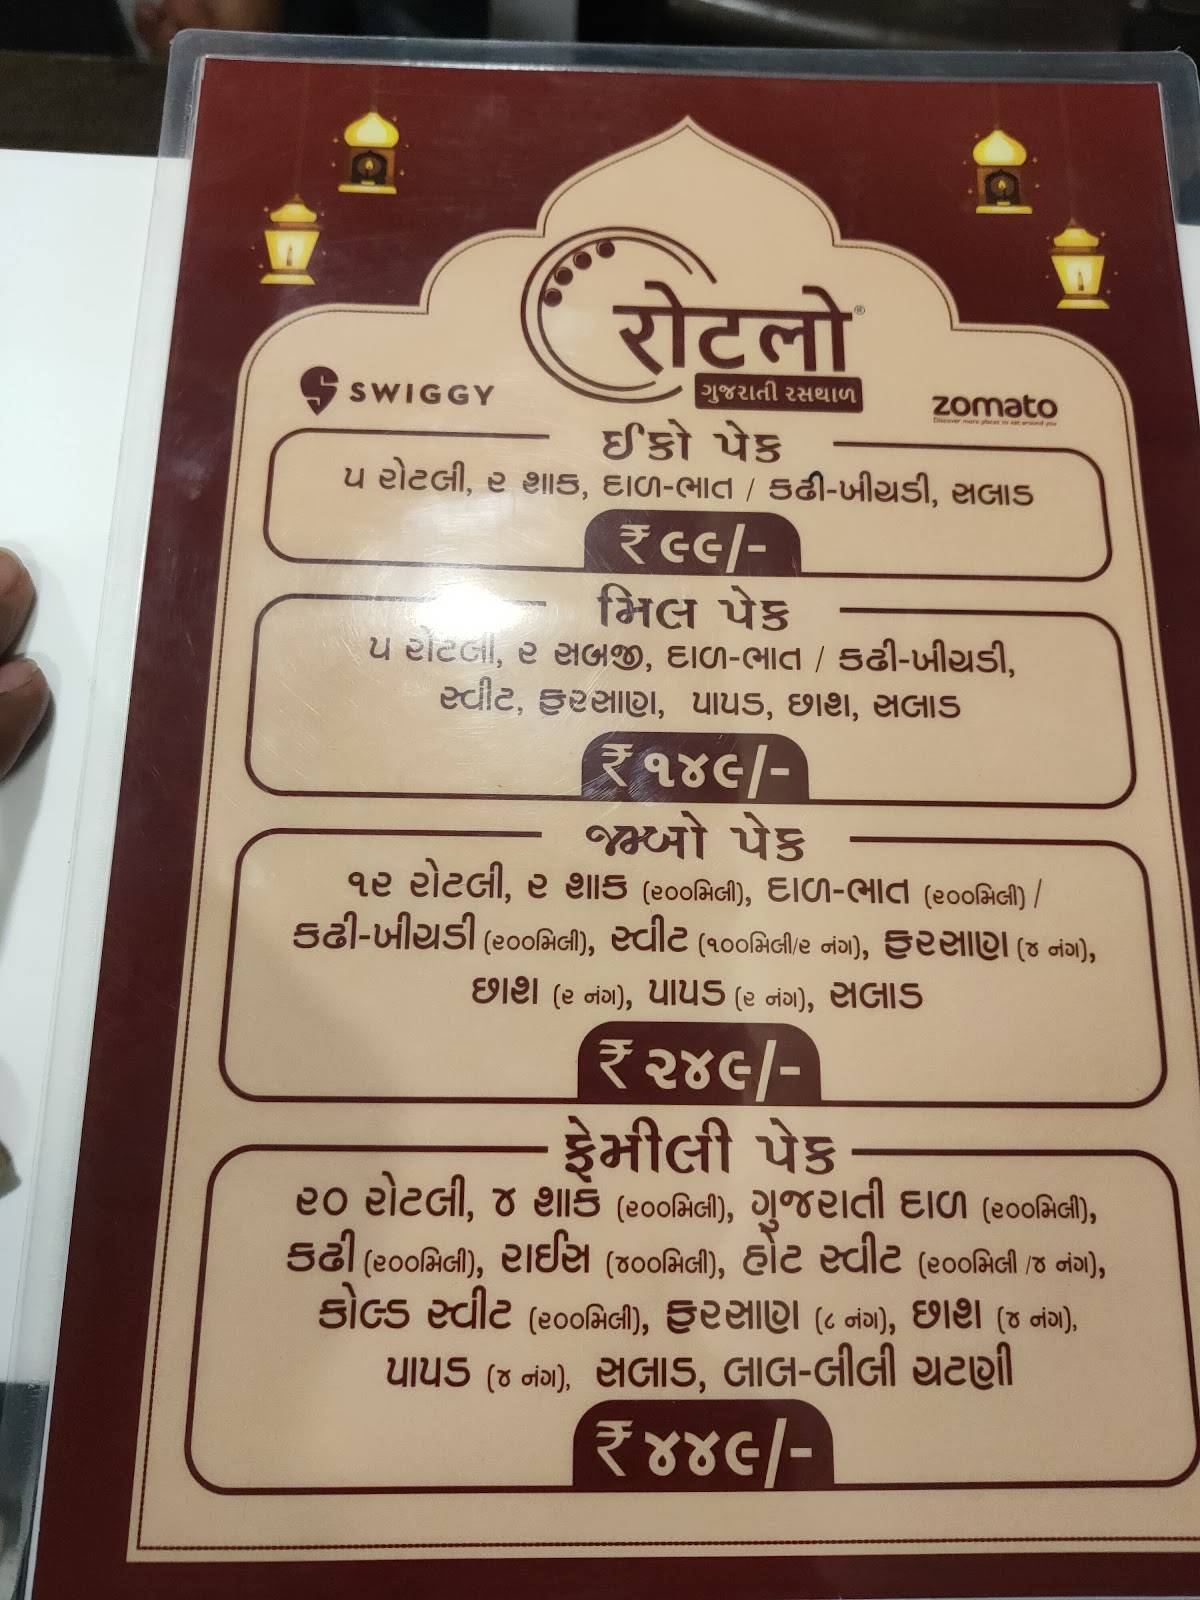 રોટલો®
ગુજરાતી રસથાળ
SWIGGY
zomato
Discover more places to eat around you
ઈકો પેક
૫ રોટલી, ૨ શાક, દાળ-ભાત / કઢી-ખીચડી, સલાડ
₹ ૯૯/-
મિલ પેક
૫ રોટલી, ૨ સબજી, દાળ-ભાત / કઢી-ખીચડી,
સ્વીટ, ફરસાણ, પાપડ, છાશ, સલાડ
₹ ૧૪૯/-
જમ્બો પેક
૧૨ રોટલી, ૨ શાક (૨૦૦મિલી), દાળ-ભાત (૨૦૦મિલી) /
કઢી-ખીચડી (૨૦૦મિલી), સ્વીટ (૧૦૦મિલી/૨ નંગ), ફરસાણ (૪ નંગ),
છાશ (૨ નંગ), પાપડ (૨ નંગ), સલાડ
₹ ૨૪૯/-
ફેમીલી પેક
૨૦ રોટલી, ૪ શાક (૨૦૦મિલી), ગુજરાતી દાળ (૨૦૦મિલી),
કઢી (૨૦૦મિલી), રાઈસ (૪૦૦મિલી), હોટ સ્વીટ (૨૦૦મિલી /૪ નંગ),
કોલ્ડ સ્વીટ (૨૦૦મિલી), ફરસાણ (૮ નંગ), છાશ (૪ નંગ),
પાપડ (૪ નંગ), સલાડ, લાલ-લીલી ચટણી
₹ ૪૪૯/-